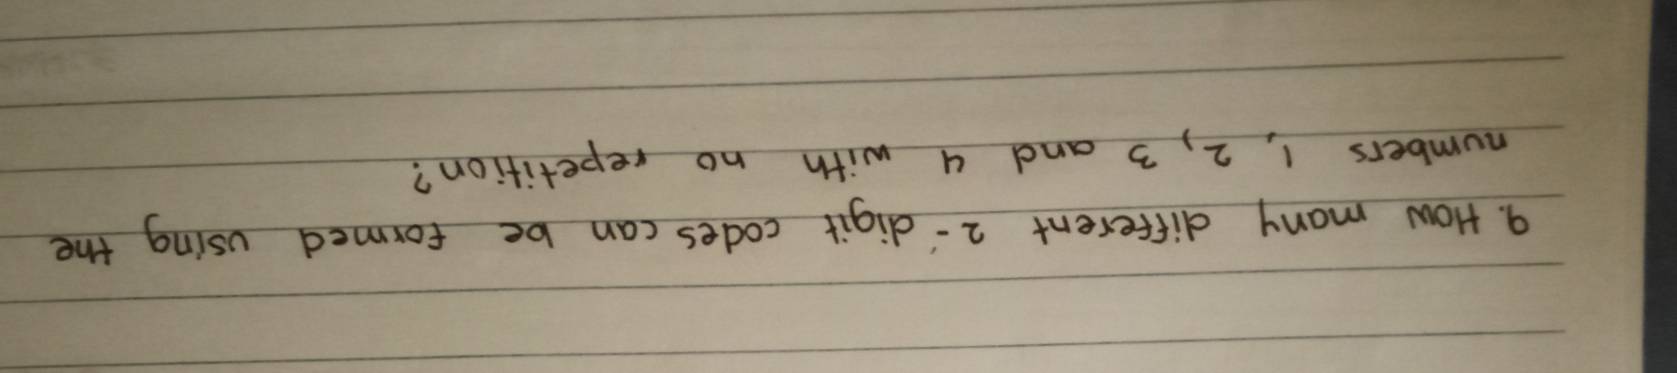 9. How many different 2-digit codes can be formed using the
numbers 1, 2, 3 and 4 with no repetition?